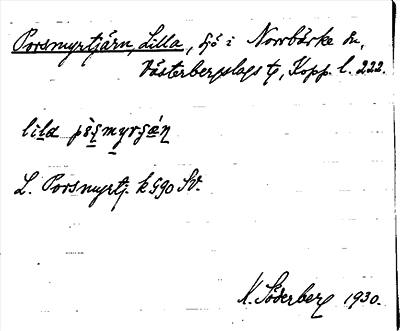 Porsmyrtjärn, Lilla, sjö i Norrbärke sn,
Västerbergslags tg, Kopp. l. 222.
lild pòsmyrʂǽn
L. Porsmyrtj. k 590 SV.
K. Söderberg 1930.